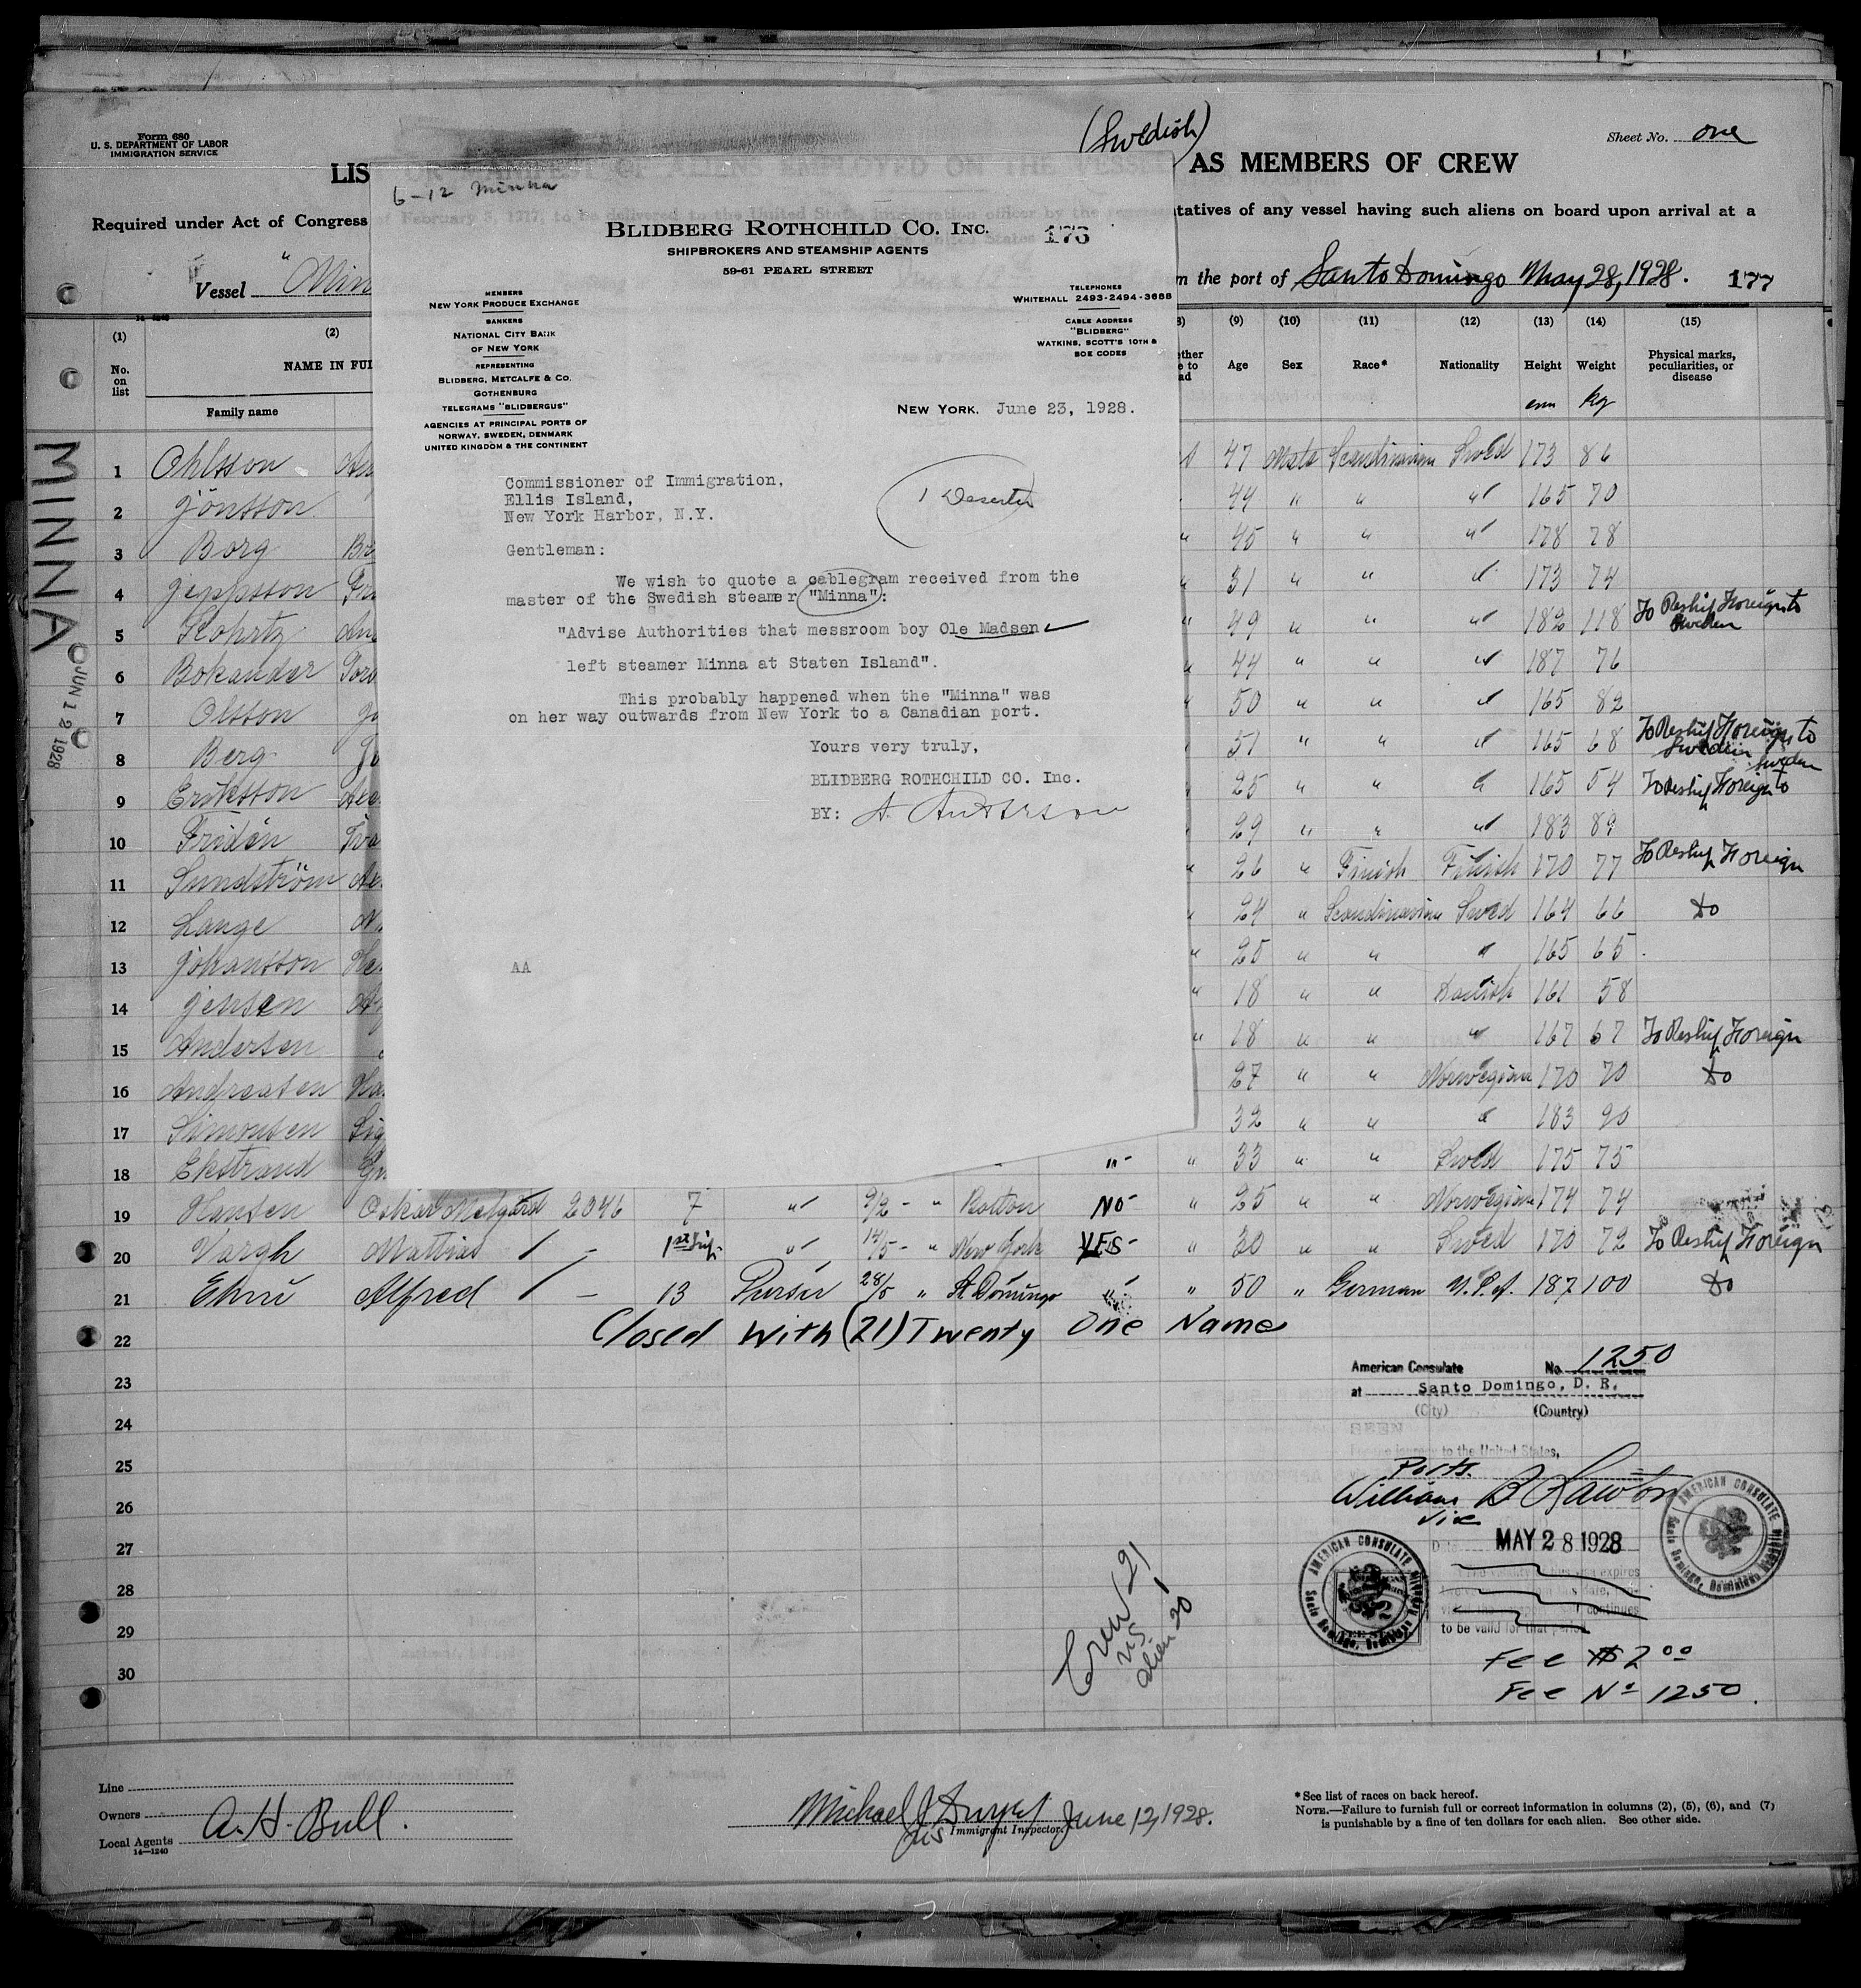 Form 680
U. S. DEPARTMENT OF LABOR
IMMIGRATION SERVICE
(Swedish)
Sheet No. one
LIS
AS MEMBERS OF CREW
Required under Act of Congress
tatives of any vessel having such aliens on board upon arrival at a
Vessel "Min
m the port of Santo Domingo May 28, 1928. 177
6-12 Minna
BLIDBERG ROTHCHILD CO. INC. 176
SHIPBROKERS AND STEAMSHIP AGENTS
59-61 PEARL STREET
MEMBERS
NEW YORK PRODUCE EXCHANGE
BANKERS
NATIONAL CITY BANK
OF NEW YORK
REPRESENTING
BLIDBERG, METCALFE & CO.
GOTHENBURG
TELEGRAMS "BLIDBERGUS"
AGENCIES AT PRINCIPAL PORTS OF
NORWAY, SWEDEN, DENMARK
UNITED KINGDOM & THE CONTINENT
TELEPHONES
WHITEHALL 2493-2494-3688
CABLE ADDRESS
"BLIDBERG"
WATKINS, SCOTT'S 10TH &
BOE CODES
NEW YORK. June 23, 1928.
Commissioner of Immigration,
Ellis Island,
New York Harbor, N.Y.
1 Deserter
Gentleman:
We wish to quote a cablegram received from the
master of the Swedish steamer "Minna":
"Advise Authorities that messroom boy Ole Madsen
left steamer Minna at Staten Island".
This probably happened when the "Minna" was
on her way outwards from New York to a Canadian port.
Yours very truly,
BLIDBERG ROTHCHILD CO. Inc.
BY: A. Anderson
AA
(1) (2) (9) (10) (11) (12) (13) (14) (15)
No. on list
NAME IN FUL
Family name
Age Sex Race* Nationality Height Weight Physical marks, peculiarities, or disease
cm kg
MINNA
JUN 12 1928
1 Ohlsson 47 Male Scandinavian Swed 173 86
2 Jönsson 44 " " " 165 70
3 Borg 45 " " " 178 78
4 Jeppsson 31 " " " 173 74
5 49 " " " 182 118 To Reship Foreign to Sweden
6 Bokander 44 " " " 187 76
7 Olsson 50 " " " 165 82
8 Berg 51 " " " 165 68 To Reship Foreign to Sweden
9 Eriksson 25 " " " 165 54 To Reship Foreign to Sweden
10 Fridén 29 " " " 183 89
11 Sundström 26 " Finish Finish 170 77 To Reship Foreign
12 Lange 24 " Scandinavian Swed 164 66 do
13 Johansson 25 " " " 165 65
14 Jensen 18 " " Danish 161 58
15 Andersen 18 " " " 167 67 To Reship Foreign
16 Andreasen 27 " " Norwegian 170 70 do
17 Simonsen 32 " " " 183 90
18 Ekstrand "- " 33 " " Swed 175 75
19 Hansen Oskar 2046 7 " 9/2 - " Boston NO- " 25 " " Norwegian 174 74
20 Vargh Mattias / - 1st Trip - " 14/5 - " New York YES- " 30 " " Swed 170 72 To Reship Foreign
21 Alfred / - 13 Purser 28/5 " St Domingo " " 50 " German U.S.A. 187 100 do
22 Closed with (21) Twenty One Name
23
24
25
26
27
28
29
30
American Consulate No. 1250
at Santo Domingo, D. R.
(City) (Country)
SEEN
For the journey to the United States,
Ports.
William B Lawton
Vice
Date MAY 28 1928
to be valid for that period
AMERICAN CONSULATE
Santo Domingo, Dominican Republic
AMERICAN CONSULATE
Santo Domingo, Dominican Republic
Fee $2 00
Fee No 1250.
Crew 21
US 1
alien 20
Line
Owners
Local Agents A. H. Bull.
14-1240
Michael J. June 12, 1928.
Immigrant Inspector.
*See list of races on back hereof.
NOTE.—Failure to furnish full or correct information in columns (2), (5), (6), and (7)
is punishable by a fine of ten dollars for each alien. See other side.